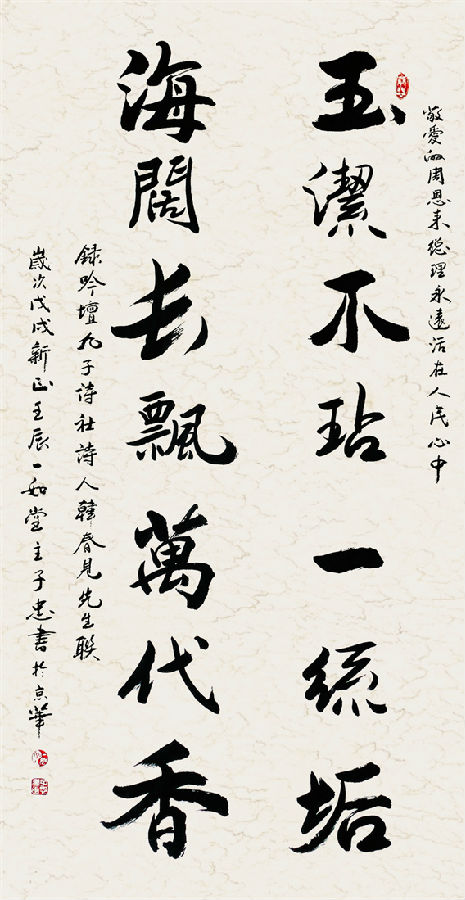 敬愛的周恩来總理永遠活在人民心中
玉潔不玷一絲垢
海闊长飄萬代香
録吟壇九子詩社詩人韓春見先生联
歲次戊戌新正壬辰一如堂主子忠書於京華